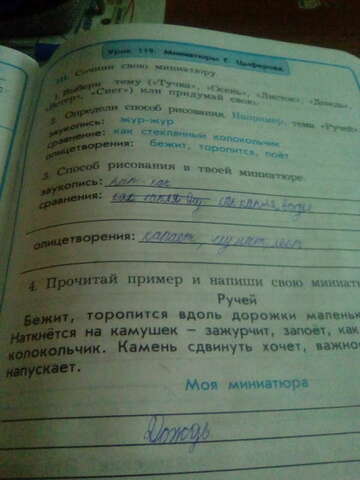 Урок 119. Миниатюры Г. Цыферова.
III. Сочини свою миниатюру.
1. Выбери тему («Тучка», «Осень», «Листок», «Дождь»,
«Ветер», «Снег») или придумай свою.
2. Определи способ рисования. Например, тема «Ручей»
звукопись: жур-жур
сравнение: как стеклянный колокольчик
олицетворения: бежит, торопится, поёт
3. Способ рисования в твоей миниатюре.
звукопись: кап-кап
сравнения:
олицетворения:
4. Прочитай пример и напиши свою миниат
Ручей
Бежит, торопится вдоль дорожки малень
Наткнётся на камушек – зажурчит, запоёт, как
колокольчик. Камень сдвинуть хочет, важно
напускает.
Моя миниатюра
Дождь